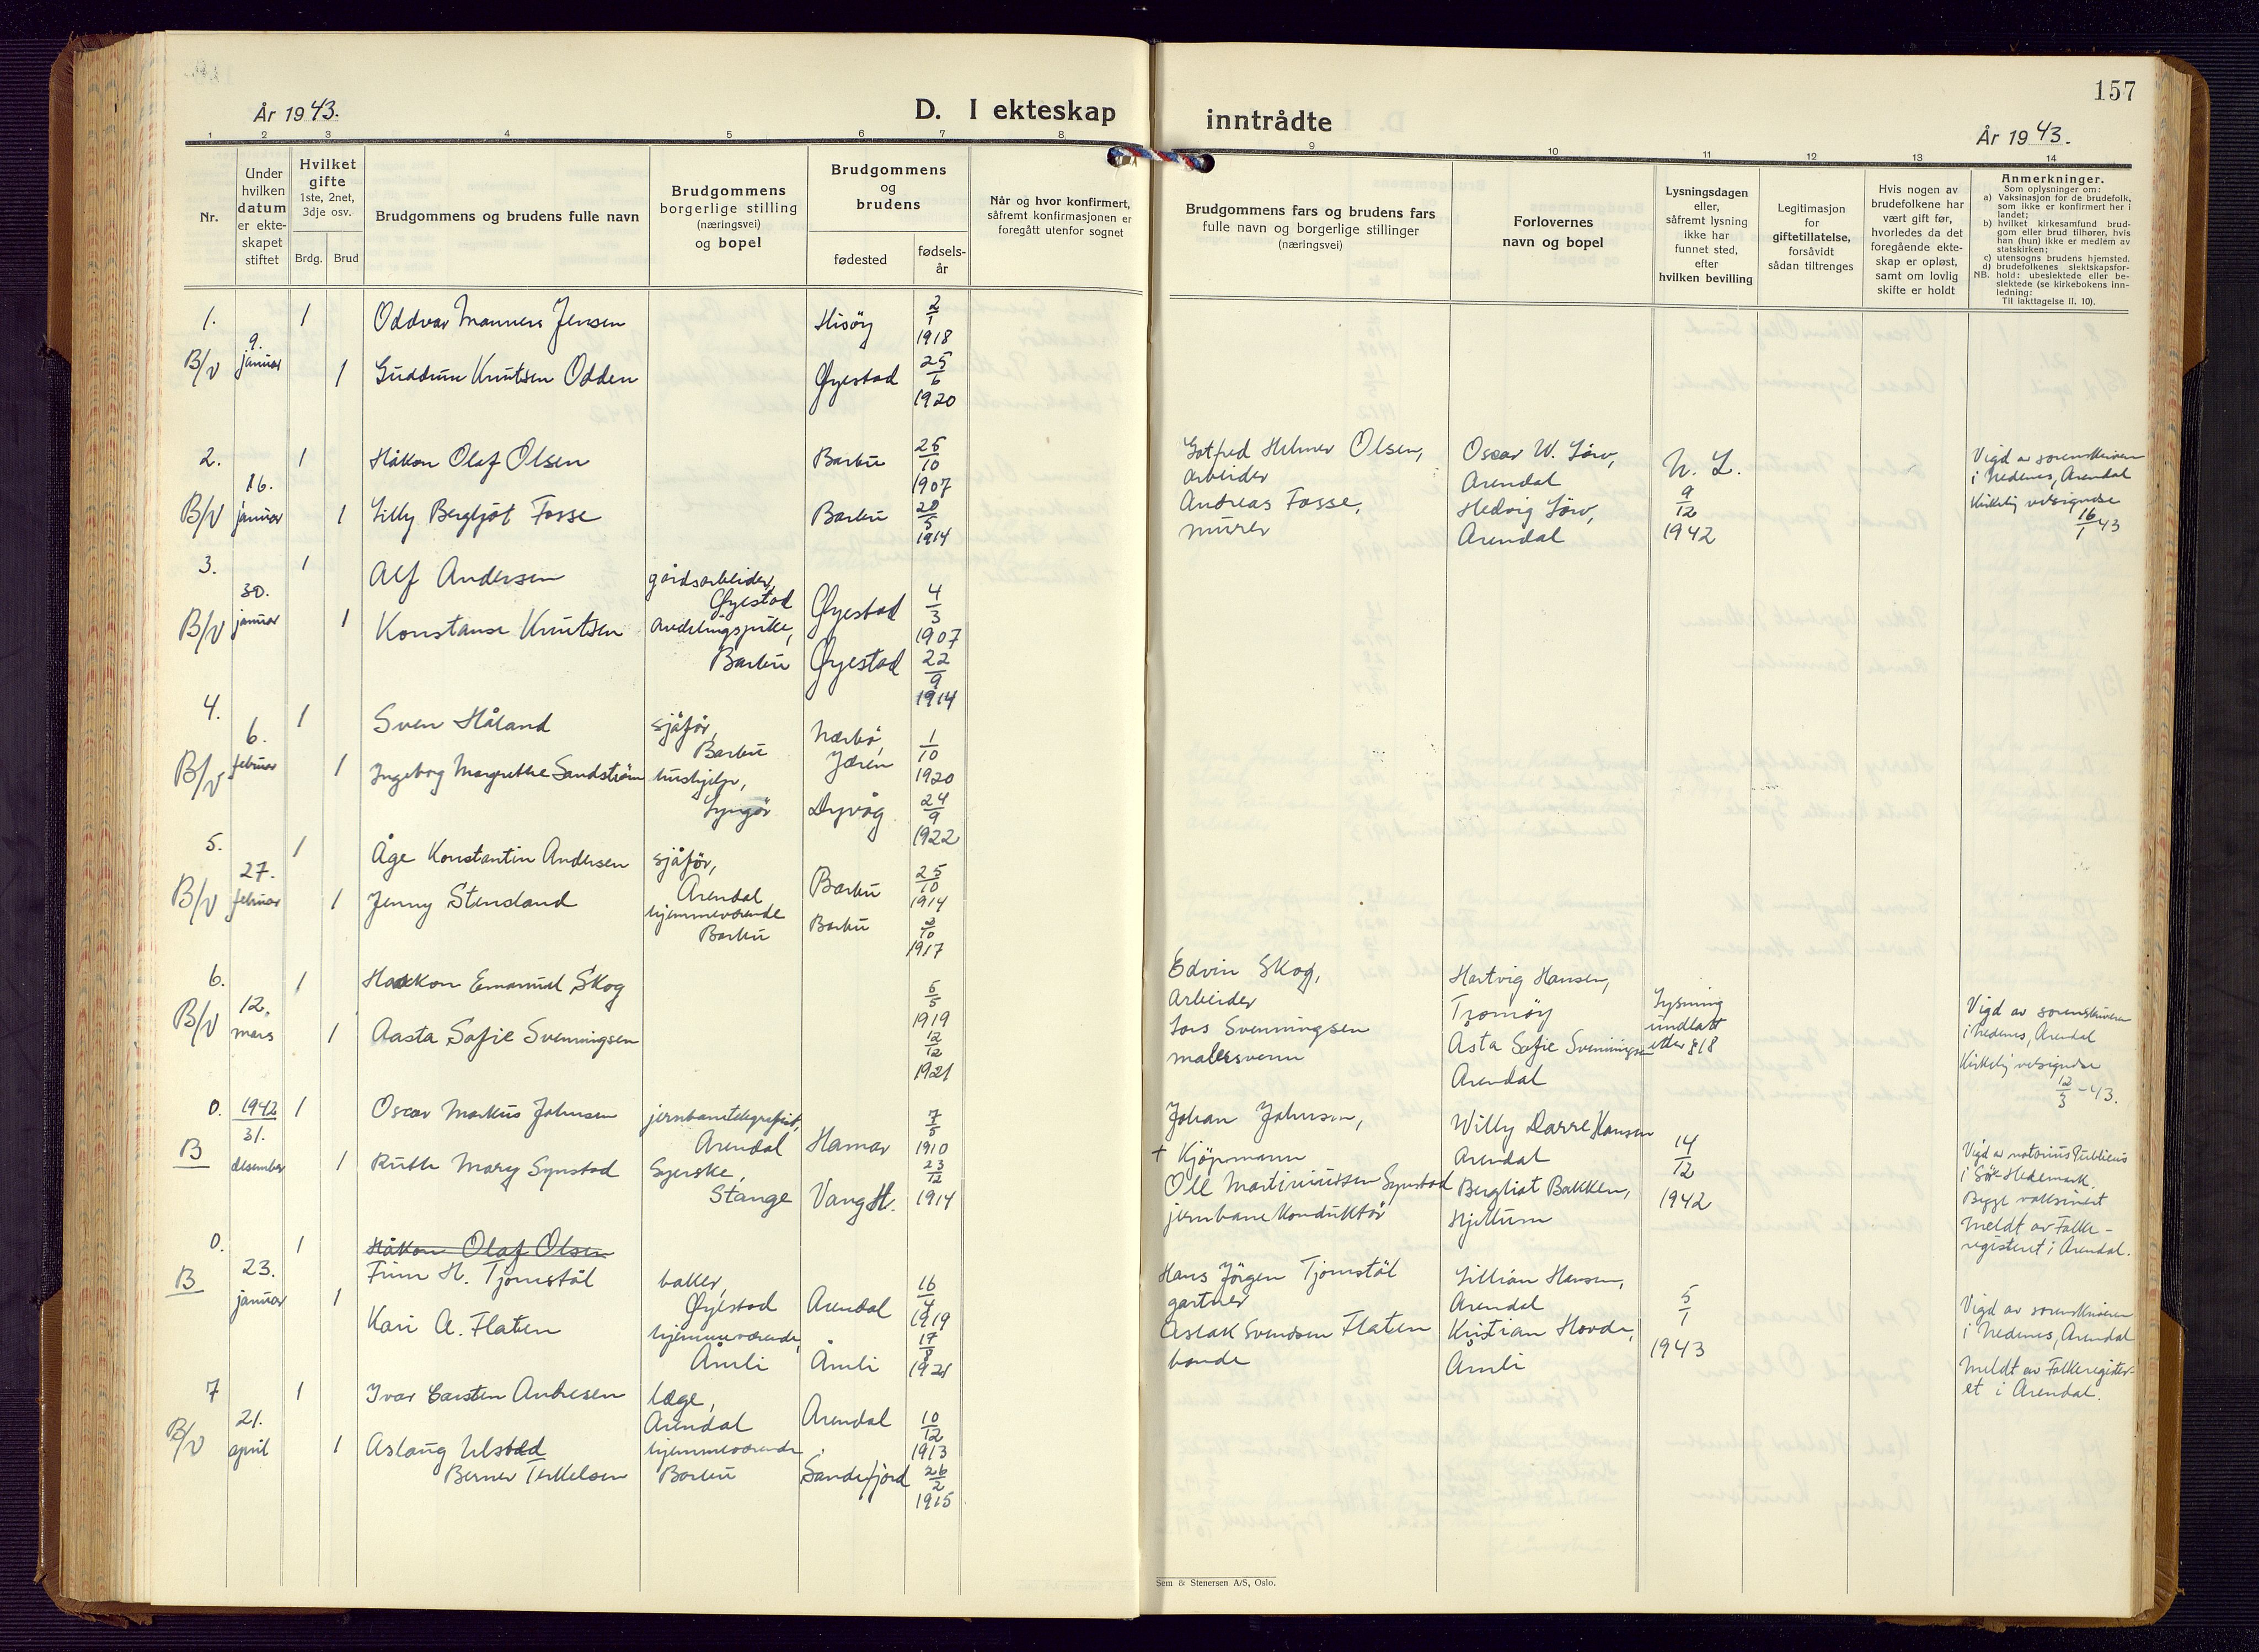 157
År 1943.
D. I ekteskap inntrådte
År 1943.
1 2 3 4 5 6 7 8 9 10 11 12 13 14
Nr.
Under
hvilken
datum
er ekte-
skapet
stiftet
Hvilket
gifte
1ste, 2net,
3dje osv.
Brdg. Brud
Brudgommens og brudens fulle navn
Brudgommens
borgerlige stilling
(næringsvei)
og bopel
Brudgommens
og
brudens
fødested
fødsels-
år
Når og hvor konfirmert,
såfremt konfirmasjonen er
foregått utenfor sognet
Brudgommens fars og brudens fars
fulle navn og borgerlige stillinger
(næringsvei)
Forlovernes
navn og bopel
Lysningsdagen
eller,
såfremt lysning
ikke har
funnet sted,
efter
hvilken bevilling
Legitimasjon
for
giftetillatelse,
forsåvidt
sådan tiltrenges
Hvis nogen av
brudefolkene har
vært gift før,
hvorledes da det
foregående ekte-
skap er opløst,
samt om lovlig
skifte er holdt
Anmerkninger.
Som oplysninger om:
a) Vaksinasjon for de brudefolk,
som ikke er konfirmert her i
landet;
b) hvilket kirkesamfund brud-
gom eller brud tilhører, hvis
han (hun) ikke er medlem av
statskirken;
c) utensogns brudens hjemsted.
d) brudefolkenes slektskapsfor-
NB. hold: ubeslektede eller be-
slektede (se kirkebokens inn-
ledning:
Til iakttagelse II, 10).
1. 1 Oddvar Jensen Hisøy 2/1 1918
B/V 9. januar 1 Guddrun Knutsen Odden Øyestad 25/6 1920
2. 1 Håkon Olaf Olsen Barbu 25/10 1907
B/V 16. januar 1 Lilly Bergljot Fosse Barbu 20/5 1914
Gotfred Helmer Olsen,
arbeider
Andreas Fosse,
murer
Oscar W. Lørv,
Arendal
Hedvig Lørv,
Arendal
N. L.
9/12
1942
Vigd av sorenskriveren
i Nedenes, Arendal
Kirkelig velsignelse
16/1 43
3. 1 Alf Andersen gårdsarbeider, Øyestad Øyestad 4/3 1907
B/V 30. januar 1 Konstanse Knutsen avdelingspike, Barbu Øyestad 22/9 1914
4. 1 Sven Håland sjåfør, Barbu Nærbø, Jæren 1/10 1920
B/V 6. februar 1 Ingeborg Margrethe Sandstrøm hushjelp, Lyngør Dypvåg 24/9 1922
5. 1 Åge Konstantin Andersen sjåfør, Arendal Barbu 25/10 1914
B/V 27. februar 1 Jenny Stensland hjemmeværende Barbu Barbu 2/10 1917
6. 1 Haakon Emanuel Skog 6/5 1919
B/V 12. mars 1 Aasta Sofie Svenningsen 12/12 1921
Edvin Skog,
arbeider
Lars Svenningsen
malersvenn
Hartvig Hansen,
Tromøy
Åsta Sofie Svenningsen
Arendal
Lysning
undlatt
etter §18
Vigd av sorenskriveren
i Nedenes, Arendal
Kirkelig velsignelse
12/3 - 43.
0. 1942 1 Oscar Markus Johnsen jernbanetelegrafist, Arendal Hamar 7/5 1910
B 31. desember 1 Ruth Mary Synstad Syerske, Stange Vang H. 23/12 1914
Johan Johnsen,
+ Kjøpmann
Ole Martiniussen Synstad
jernbanekonduktør
Willy Darre Hansen
Arendal
Bergliot Bakken,
Hjellum
14/12
1942
Vigd av notarius Publicus
i Sør-Hedemark.
Begge vaksinert
Meldt av Folke-
registeret i Arendal.
0. 1 Håkon Olaf Olsen
Finn H. Tjomstøl baker, Øyestad Arendal 16/4 1919
B 23. januar 1 Kari A. Flaten hjemmeværende, Åmli Åmli 17/8 1921
Hans Jörgen Tjomstøl
gartner
Aslak Svendsen Flaten
bonde
Lillian Hansen,
Arendal
Kristian Hovde,
Åmli
5/1
1943
Vigd av sorenskriveren
i Nedenes, Arendal
Meldt av Folkeregister-
et i Arendal.
7 1 Ivar Carsten Andresen læge, Arendal Arendal 10/12 1913
B/V 21. april 1 Aslaug Ulstad
Berner Terkelsen hjemmeværende Barbu Sandefjord 26/2 1915
Sem & Stenersen A/S, Oslo.